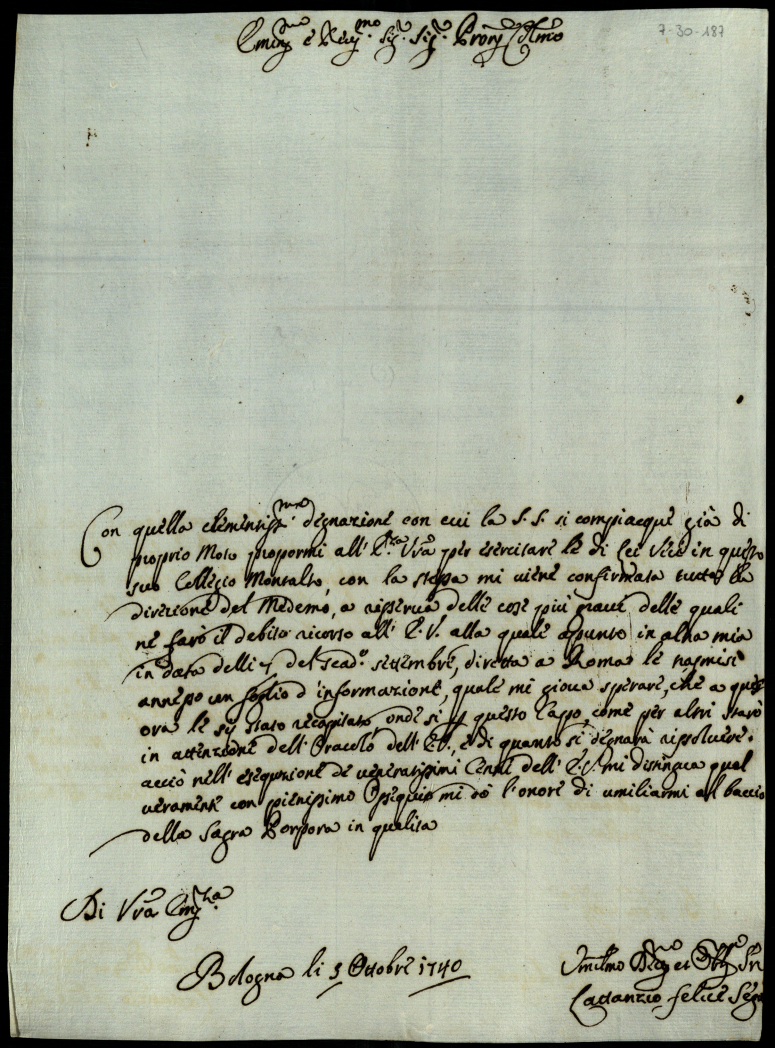 7-30-187
Emin.mo e Rev.mo Sig.r Sig.r Pron Col.mo
Con quella clementiss.ma degnazione con cui la S.S. si compiacque già di
proprio Moto propormi all' E.za Vra per esercitare le di Lei Veci in questo
suo Collegio Montalto, con la stessa mi viene confirmata tutta la
direzione del Medemo, a risserva delle cose più gravi delle quali
ne farò il debito ricorso all' E.V. alla quale appunto in altra mia
in data delli del scad.o settembre, diretta a Roma le trasmisi
annesso un foglio d'informazione, quale mi giova sperare, che a quest'
ora le sij stato recapitato, onde si p questo Casso, come per altri starò
in attenzione dell' Oracolo dell' E.V., e di quanto si degnarà rissolvere.
acciò nell' esequzione de veneratissimi Cenni dell' E.V. mi distingua qual
veramente con pienissimo Ossequio mi dò l'onore di umiliarmi al baccio
della Sagra Porpora in qualità
Di Vra Emza
Bologna li 5 Ottobre 1740
Umilmo Devo et Obbmo
Lattanzio Felice Sega